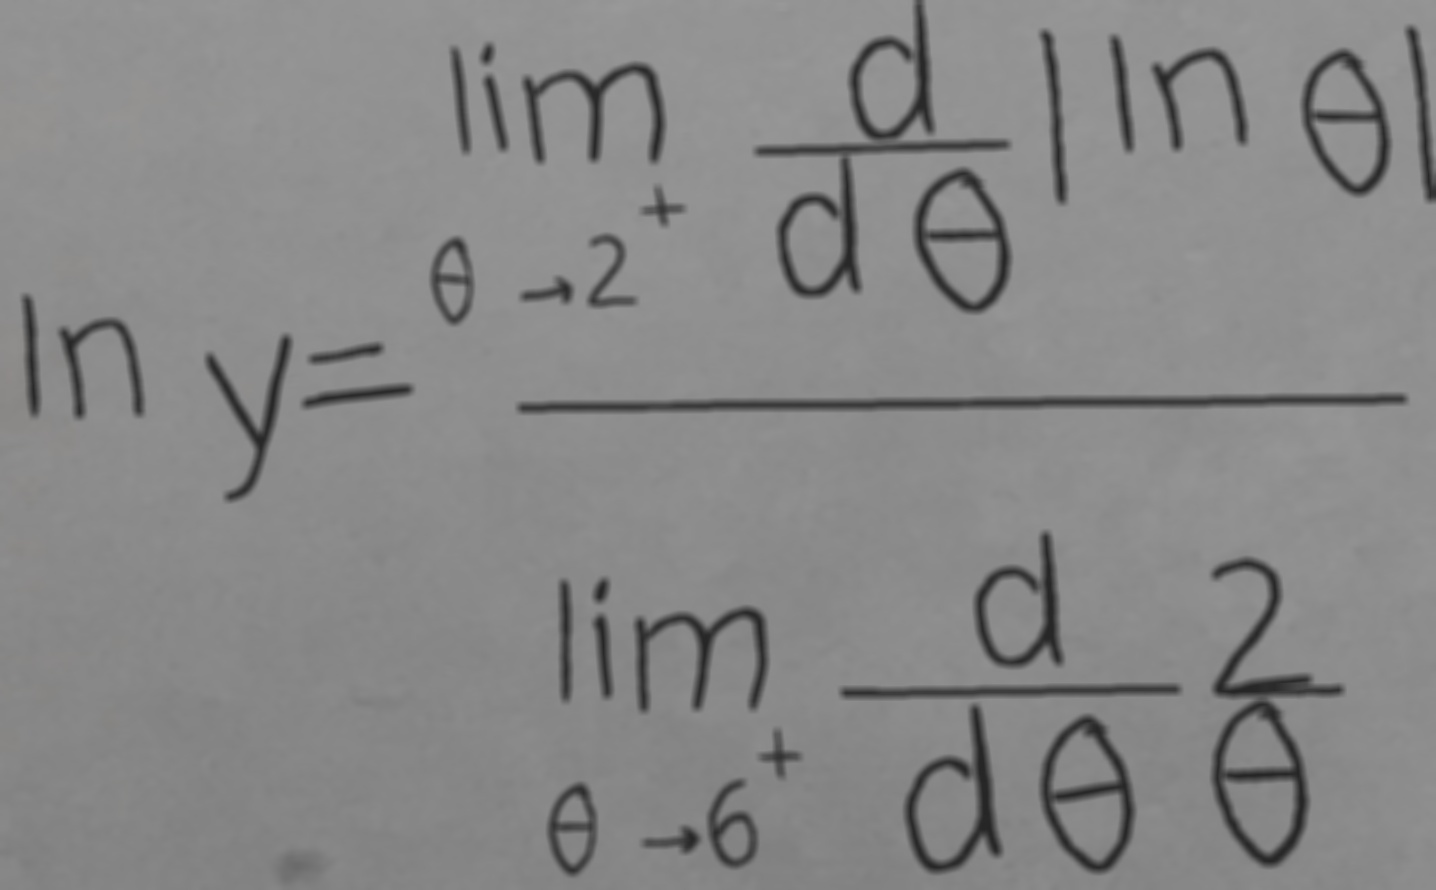 ln y = \frac{\lim_{\theta \to 2^+} \frac{d}{d\theta} |\ln \theta|}{\lim_{\theta \to 6^+} \frac{d}{d\theta} \frac{2}{\theta}}